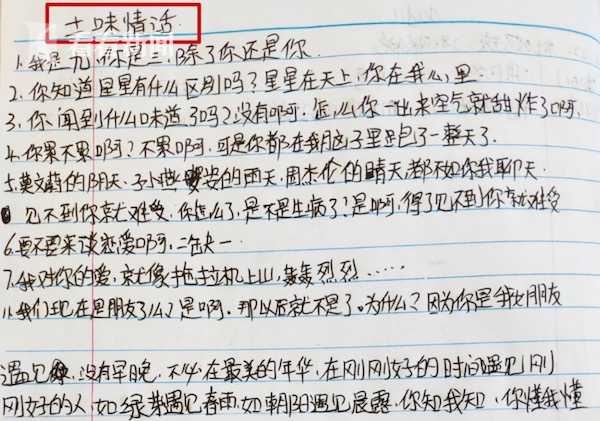 土味情话
看看新闻
1.我是九,你是三,除了你还是你.
2.你知道星星有什么区别吗?星星在天上,你在我心里.
3.你闻到什么味道了吗?没有啊,怎么你一出来空气就甜炸了啊,
4.你累不累啊?不累啊,可是你都在我脑子里跑了一整天了.
5.莫文蔚的阴天,孙燕姿的雨天,周杰伦的晴天,都不如你我聊天.
见不到你就难受,你怎么了,是不是生病了?是啊,得了见不到你就难受
6.要不要来谈恋爱啊,二缺一.
7.我对你的爱,就像拖拉机上山,轰轰烈烈……
11.我们现在是朋友了么?是啊.那以后就不是了.为什么?因为你是我女朋友
遇见 没有早晚,不必在最美的年华,在刚刚好的时间遇见刚
刚好的人,如绿芽遇见春雨,如朝阳遇见晨露,你知我知,你懂我懂